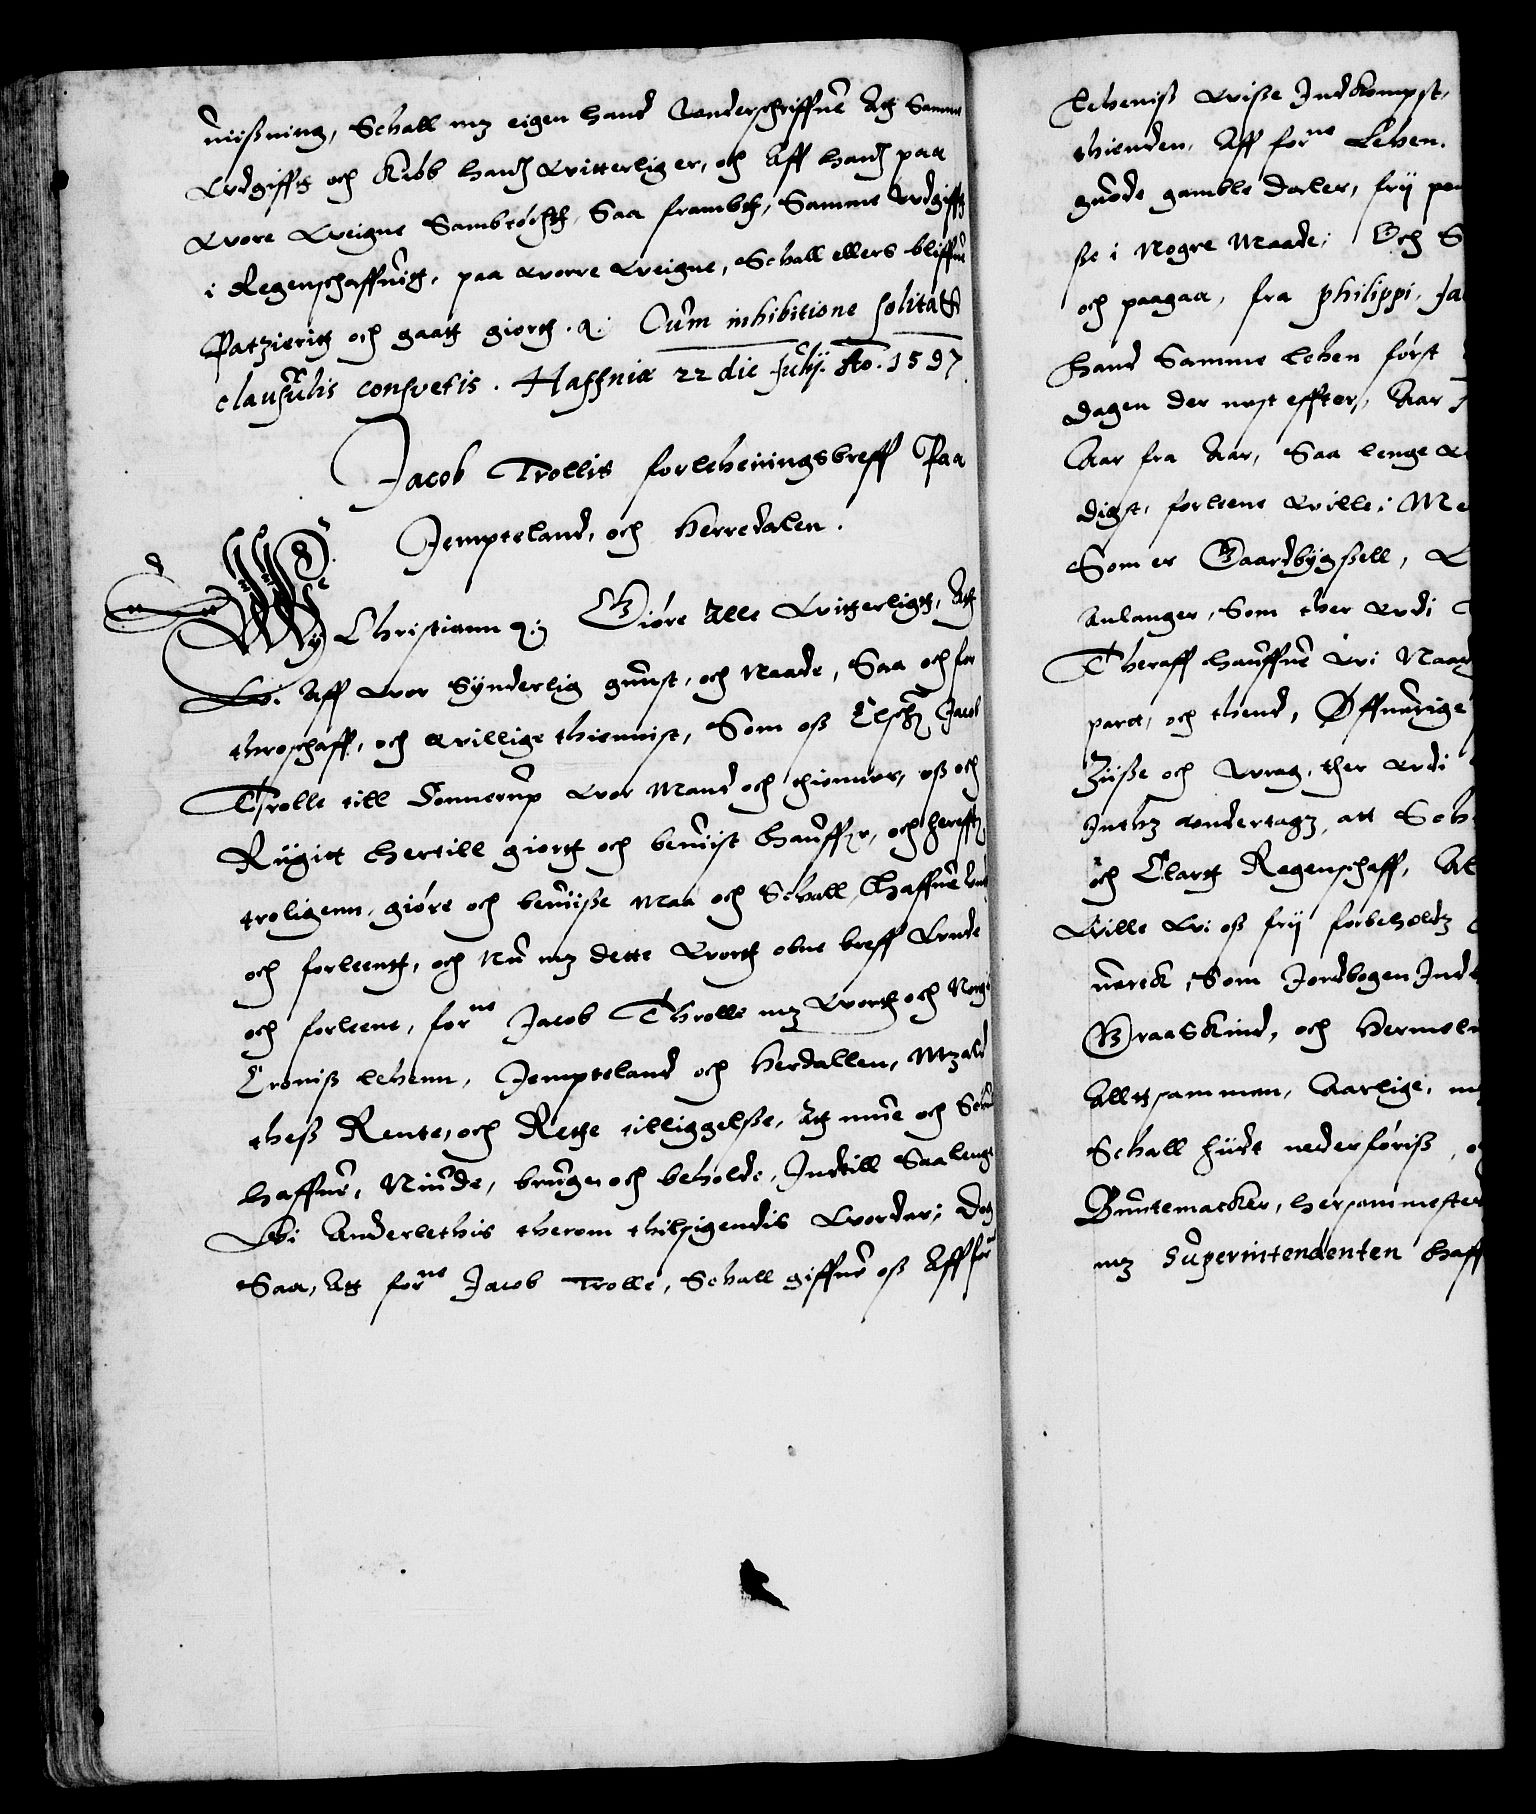 uiisning, Schall mz eigen hand Vonderschriffuit Att Samme
Vdgifft och Kiøb hans Witterlig er, och Aff hans paa
Wore Weigne Sambtøchtt, Saa frambtt, Samme Vdgifft
i Regenschaffuitt, paa Worre Weigne, Schall ellers bliffue
Patzieritt och gaatt giortt. &: Cum inhibitione solita &
clausulis consvetis. Haffniæ 22 die Julij. Ao. 1597.
Jacob Trollis forlehningsbreff Paa
Jempteland, och Herredalen.
Wy Christiann &: Giøre Alle Witterligtt, Att
Wi Aff Wor Synderlig gunst, och Naade, Saa och for
throschaff, och Willige thienist, Som oss Elsch: Jacob
Trolle till Connerup Wor Mand och thienner, oss och
Rigitt hertill giortt och beuiist haffuer, och herefft:
troligenn, giøre och beuiise Maa och Schall, Haffue Vndt
och forleentt, och Nu mz dette Wortt obne breff Vnde
och forleene, forne Jacob Throlle mz Wortt och Norgis
Croniss lehenn, Jempteland och Herdallen, Mz ald
thess Rente, och Rette tilliggelsse, Att mue och Schulle
haffue, Niude, bruge och beholde, Indtill Saa lenge
Wi Anderlethis therom thilsigendis Worder; Dog
Saa, Att forne Jacob Trolle, Schall giffue oss Aff forne
Leheniss Wisse Indkompst,
thienden, Aff forne Lehen.
guode gamble daler, frij
sse i Nogre Maade; Och
och paagaa, fra Philippi,
hand Samme lehen først
dagen der nest effter, Aar
Aar fra Aar, Saa lenge
digst, forleene Wille; Me
Som er Gaardbygssell,
Anlanger, Som ther Vdi
Theraff hauffue Wi Naa
part, och thend, Øffuerige
Ziise och Vrag, ther Vdi
Inthz Vndertagz, att Sch
och Clartt Regenschaff, Al
Wille Wi oss frij forbeholdz
uerck, Som Jordbogen Ind
Graaskind, och Hermeln
Alltsammen, Aarlige, mz
Schall hiidt nederføriss,
Buntemacker, hersammested
mz Superintendenten haff